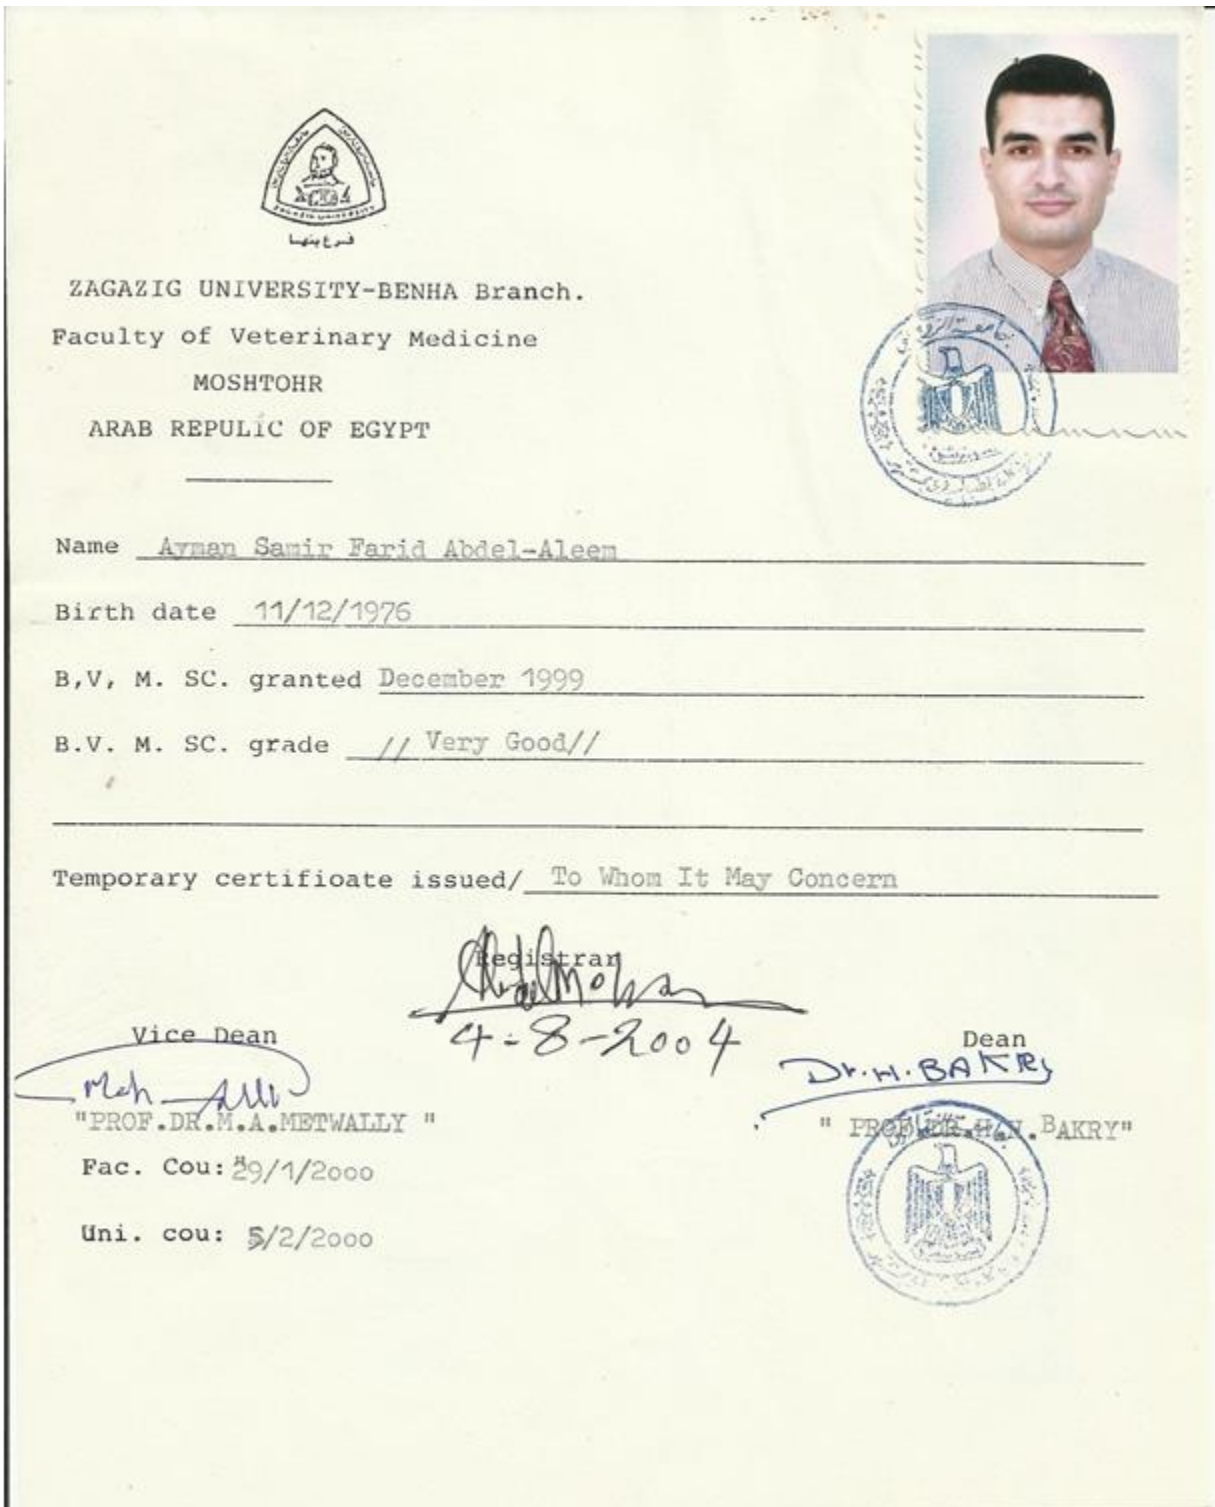 ZAGAZIG UNIVERSITY
فرع بنها
ZAGAZIG UNIVERSITY-BENHA Branch.
Faculty of Veterinary Medicine
MOSHTOHR
ARAB REPULIC OF EGYPT
Name Ayman Samir Farid Abdel-Aleem
Birth date 11/12/1976
B,V, M. SC. granted December 1999
B.V. M. SC. grade // Very Good//
Temporary certifioate issued/ To Whom It May Concern
Registrar
4-8-2004
Vice Dean
Dean
Dr.H.BAKRy
"PROF.DR.M.A.METWALLY "
" PROF.DR.H. .BAKRY"
Fac. Cou: 29/1/2000
Uni. cou: 5/2/2000